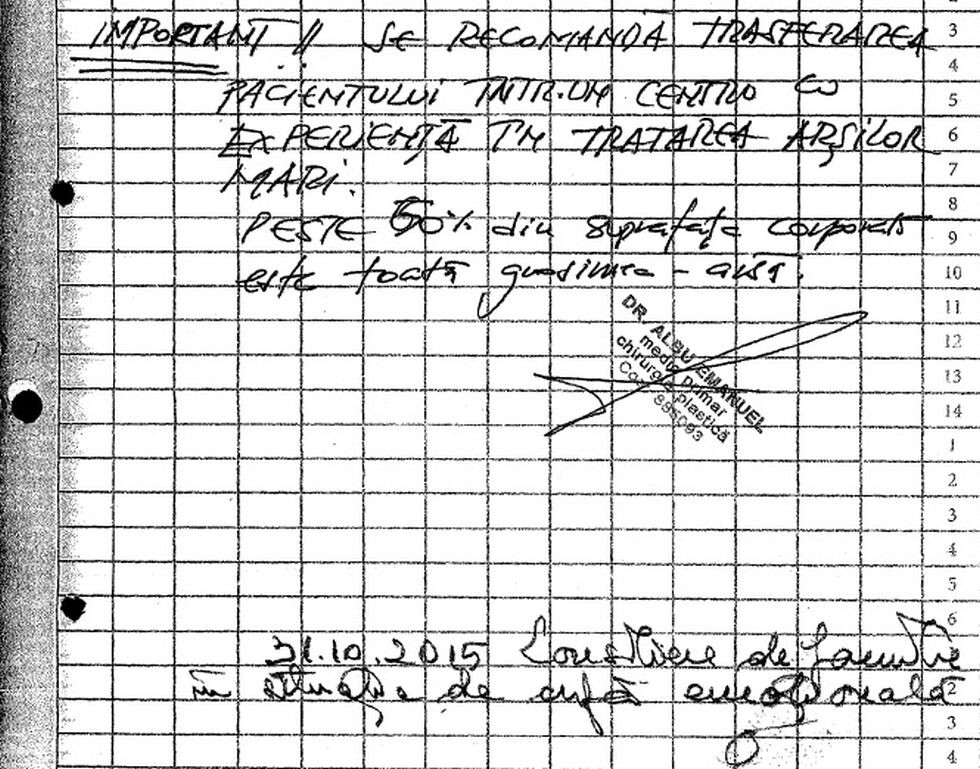 IMPORTANT !! SE RECOMANDĂ TRASFERAREA
PACIENTULUI ÎNTR-UN CENTRU CU
EXPERIENȚĂ ÎN TRATAREA ARȘILOR
MARI.
PESTE 60% din suprafața corporală
este toată grosimea - arsă.
DR. ALBU EMANUEL
medic primar
chirurgie plastică
Cod 895093
31.10.2015 Consiliere de familie
în situație de criză emoțională
3
4
5
6
7
8
9
10
11
12
13
14
1
2
3
4
5
6
2
3
4